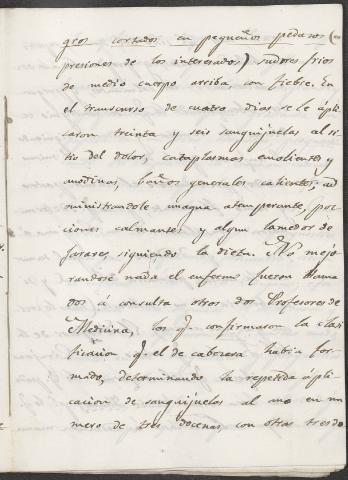 gros cortados en pequeños pedazos (es
presiones de los interesados) sudores frios
de medio cuerpo arriba, con fiebre. En
el transcurso de cuatro dias se le apli
caron treinta y seis sanguijuelas al si
tio del dolor, cataplasmas emolientes y
anodinas, baños generales calientes, ad
ministrandole un agua atemperante, por
ciones calmantes y algun lamedor de
Jarabes, siguiendo la dieta. No mejo
randose nada el enfermo fueron llama
dos á consulta otros dos Profesores de
Medicina, los q. confirmaron la clasi
ficacion q. el de cabecera habia for
mado, determinando la repetida apli
cacion de sanguijuelas al ano en nu
mero de tres docenas, con otras tres do